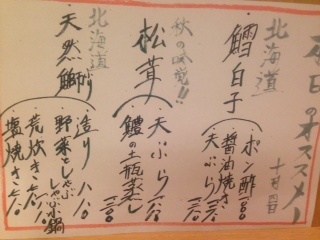 本日のオススメ
北海道
・鱈白子
ポン酢
醤油焼き
天ぷら
秋の味覚!!
・松茸
天ぷら
鱧の土瓶蒸し
北海道
・天然鰤
ぶり
造り
野菜としゃぶしゃぶ小鍋
荒炊き
塩焼き